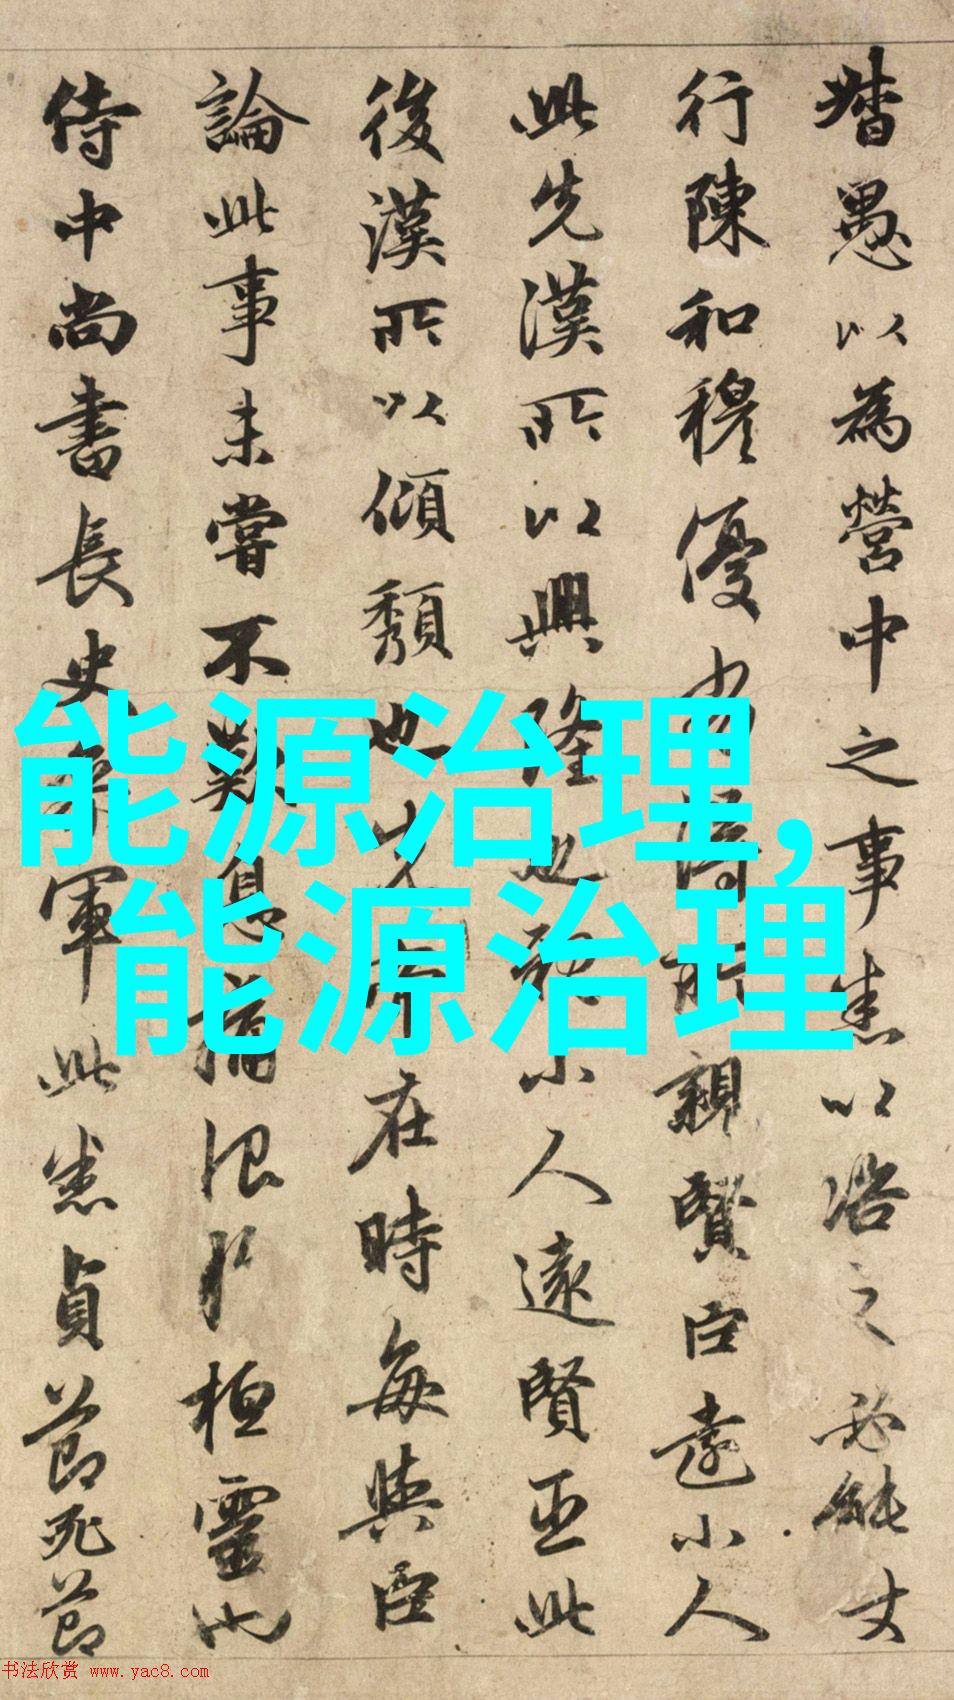 督愚以為營中之事悉以咨之必能
行陳和穆優劣得所親賢臣遠小人
此先漢所以興隆也親小人遠賢臣此
後漢所以傾頹也先帝在時每與臣
論此事未嘗不歎息痛恨於桓靈也
侍中尚書長史參軍此悉貞節死節
能源治理,
能源治理
书法欣赏 www.yac8.com